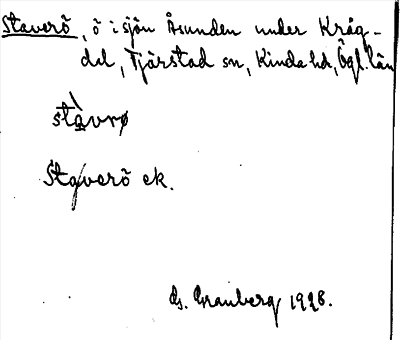 Staverö, ö i sjön Åsunden under Kråg-
dal, Tjärstad sn, Kinda hd, Ögl. län
stàvrø
Staverö ek.
G. Granberg 1928.